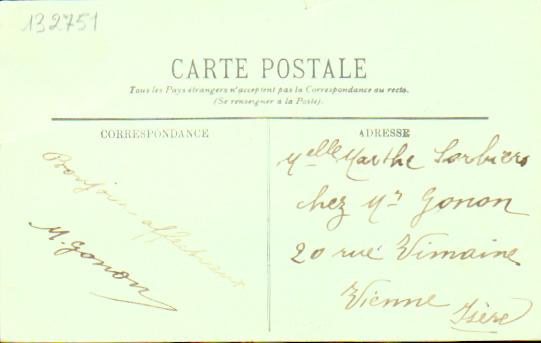 132751
CARTE POSTALE
Tous les Pays étrangers n'acceptent pas la Correspondance au recto.
(Se renseigner à la Poste).
CORRESPONDANCE
Bonjour affectueux
M. Gonon
ADRESSE
Melle Marthe Sorbiers
chez Mr Gonon
20 rue Vimaine
Vienne
Isère